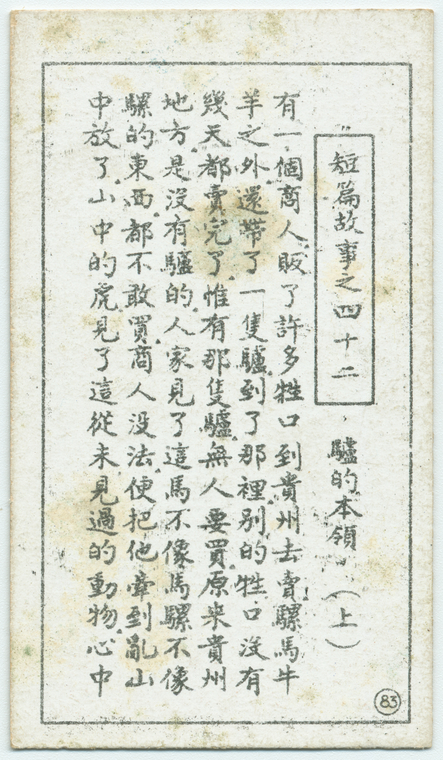 短篇故事之四十二
驢的本領 (上)
有一個商人販了許多牲口到貴州去賣騾馬牛
羊之外還帶了一隻驢到了那裡別的牲口沒有
幾天都賣完了惟有那隻驢無人要買原來貴州
地方是沒有驢的人家見了這馬不像馬騾不像
騾的東西都不敢買商人没法便把他牽到亂山
中放了山中的虎見了這從未見過的動物心中
83